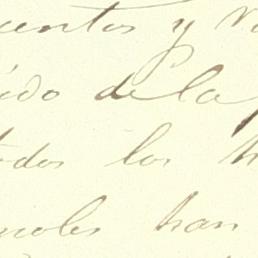 entos y
ido de la
todos los
noles han